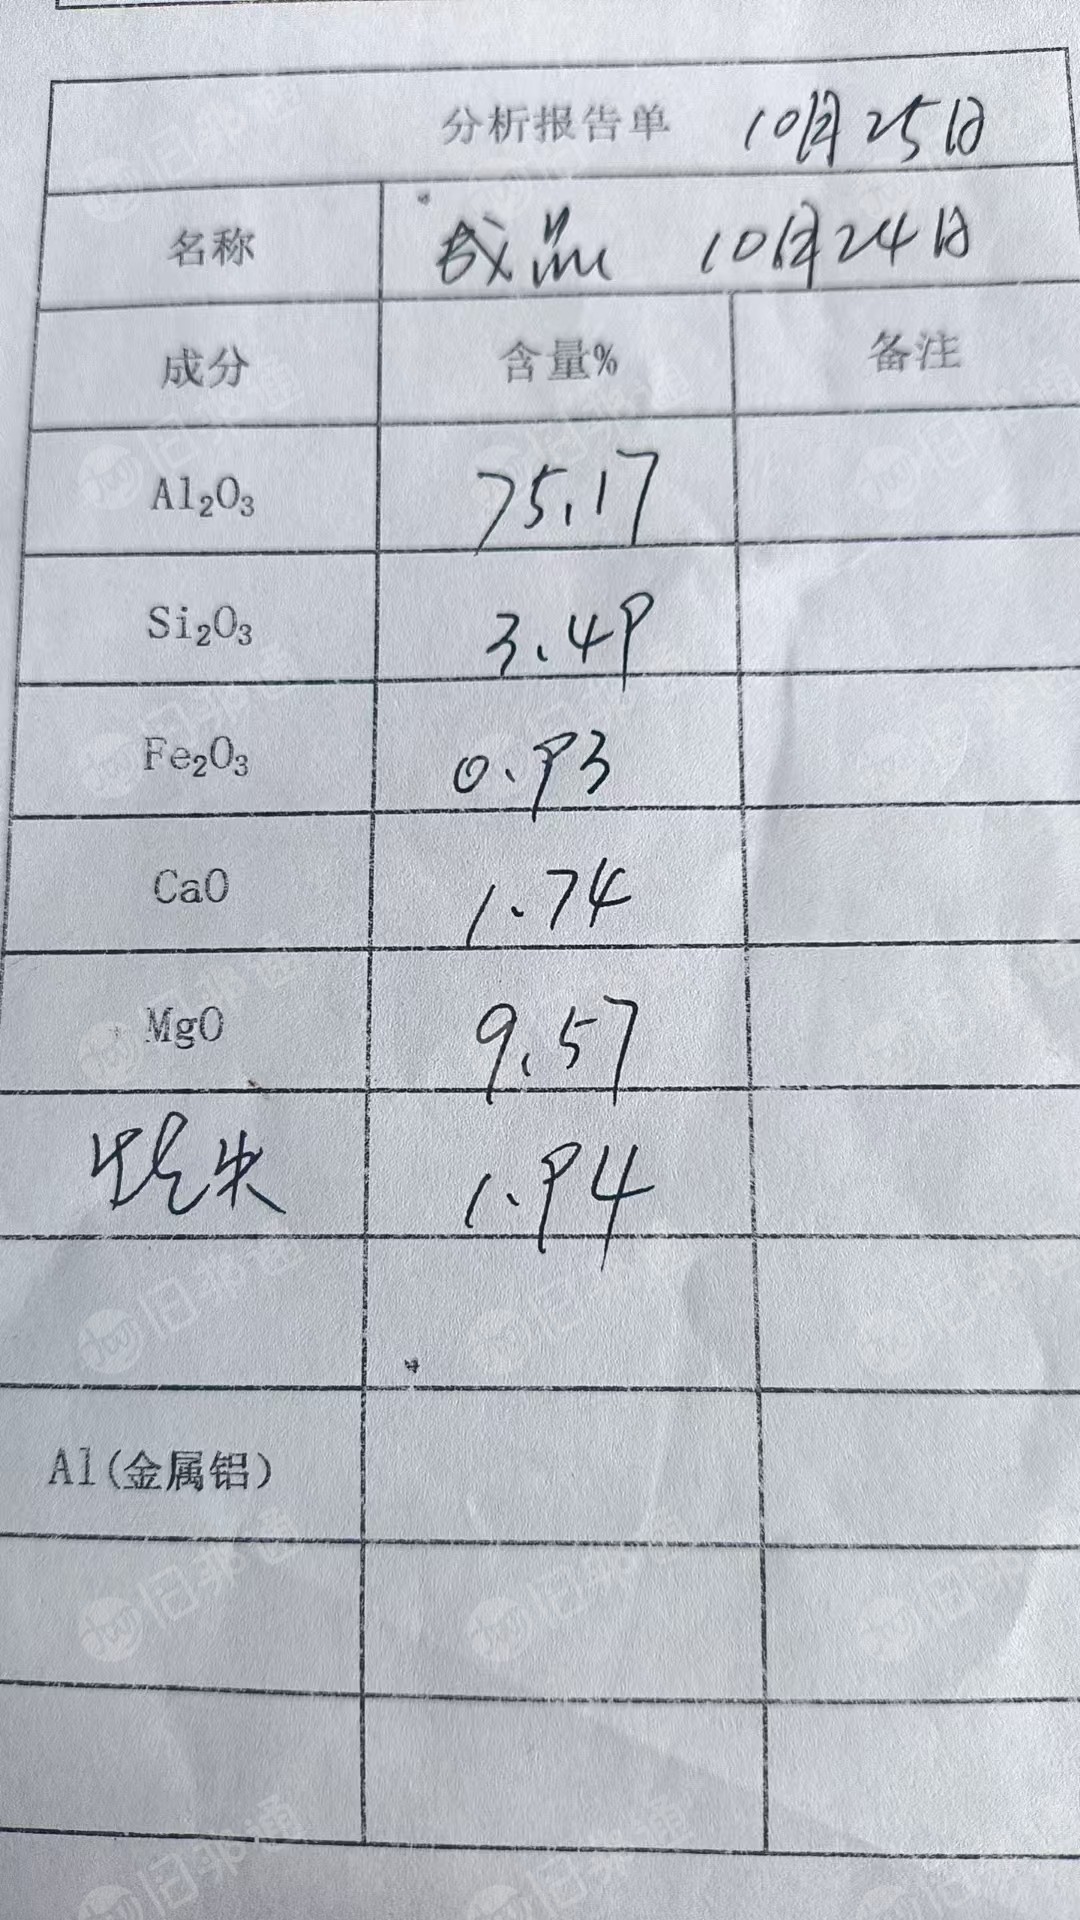 分析报告单 10月25日
名称 成品 10月24日
成分 含量% 备注
Al₂O₃ 75.17
Si₂O₃ 3.49
Fe₂O₃ 0.93
CaO 1.74
MgO 9.57
烧失 1.94
Al(金属铝)
旧非通